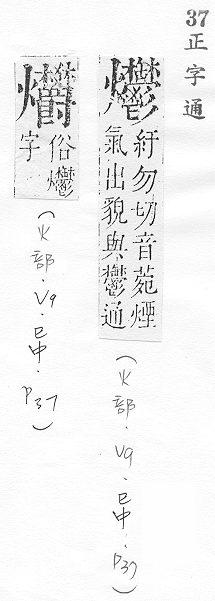 37正字通
爩 紆勿切音菀煙
氣出貌與鬱通
(火部.V9.巳中.P37)
俗爩
字
(火部.V9.巳中.P37)